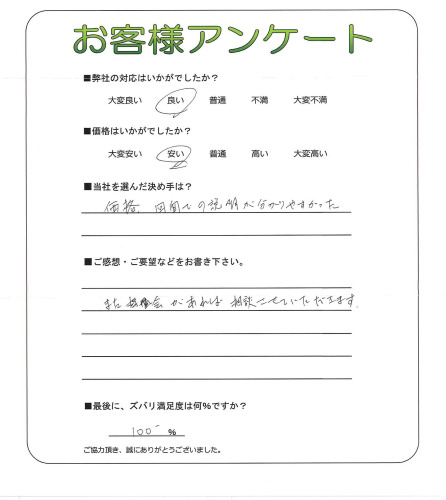 お客様アンケート
■弊社の対応はいかがでしたか？
大変良い 良い 普通 不満 大変不満
■価格はいかがでしたか？
大変安い 安い 普通 高い 大変高い
■当社を選んだ決め手は？
価格、図面での説明が分かりやすかった
■ご感想・ご要望などをお書き下さい。
また機会があれば相談させていただきます。
■最後に、ズバリ満足度は何%ですか？
100 %
ご協力頂き、誠にありがとうございました。